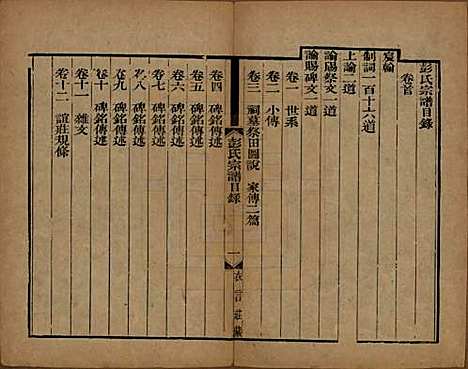 彭氏宗譜目錄
卷首
宸翰
制詞一百十六道
上諭二道
諭賜祭文一道
諭賜碑文一道
卷一 世系
卷二 小傳
卷三 祠墓祭田圖說 家傳二篇
彭氏宗譜目錄 一 衣言莊藏
卷四 碑銘傳述
卷五 碑銘傳述
卷六 碑銘傳述
卷七 碑銘傳述
卷八 碑銘傳述
卷九 碑銘傳述
卷十 碑銘傳述
卷十一 雜文
卷十二 誼莊規條